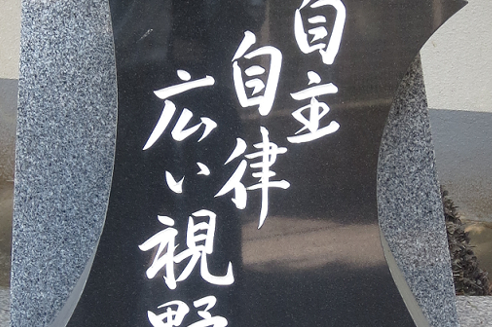 自主
自律
広い視野